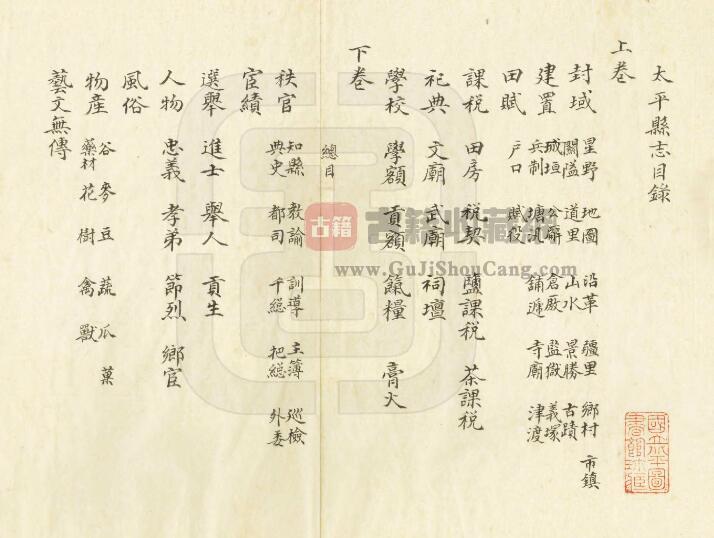 太平縣志目錄
上卷
封域 星野 地圖 沿革 疆里 鄉村 市鎮
關隘 道里 山水 景勝 古蹟
建置 城垣 公廨 倉厫 監獄 義塚
兵制 塘汛 舖遞 寺廟 津渡
田賦 戶口 賦役
課稅 田房 稅契 鹽課稅 茶課稅
祀典 文廟 武廟 祠壇
學校 學額 貢額 餼糧 膏火
下卷
總目
秩官 知縣 教諭 訓導 主簿 巡檢
典史 都司 千總 把總 外委
宦績
選舉 進士 舉人 貢生
人物 忠義 孝弟 節烈 鄉宦
風俗
物產 谷 麥 豆 蔬 瓜 菓
藥材 花 樹 禽 獸
藝文無傳
古籍
古籍收藏網
www.GuJiShouCang.com